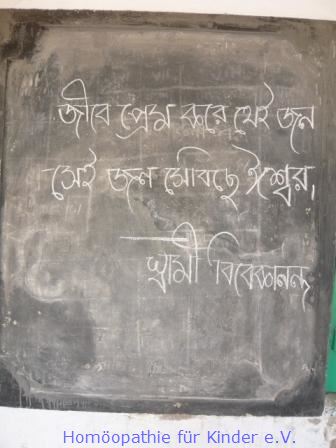 জীবে প্রেম করে যেই জন
সেই জন সেবিছে ঈশ্বর।
স্বামী বিবেকানন্দ
Homöopathie für Kinder e.V.